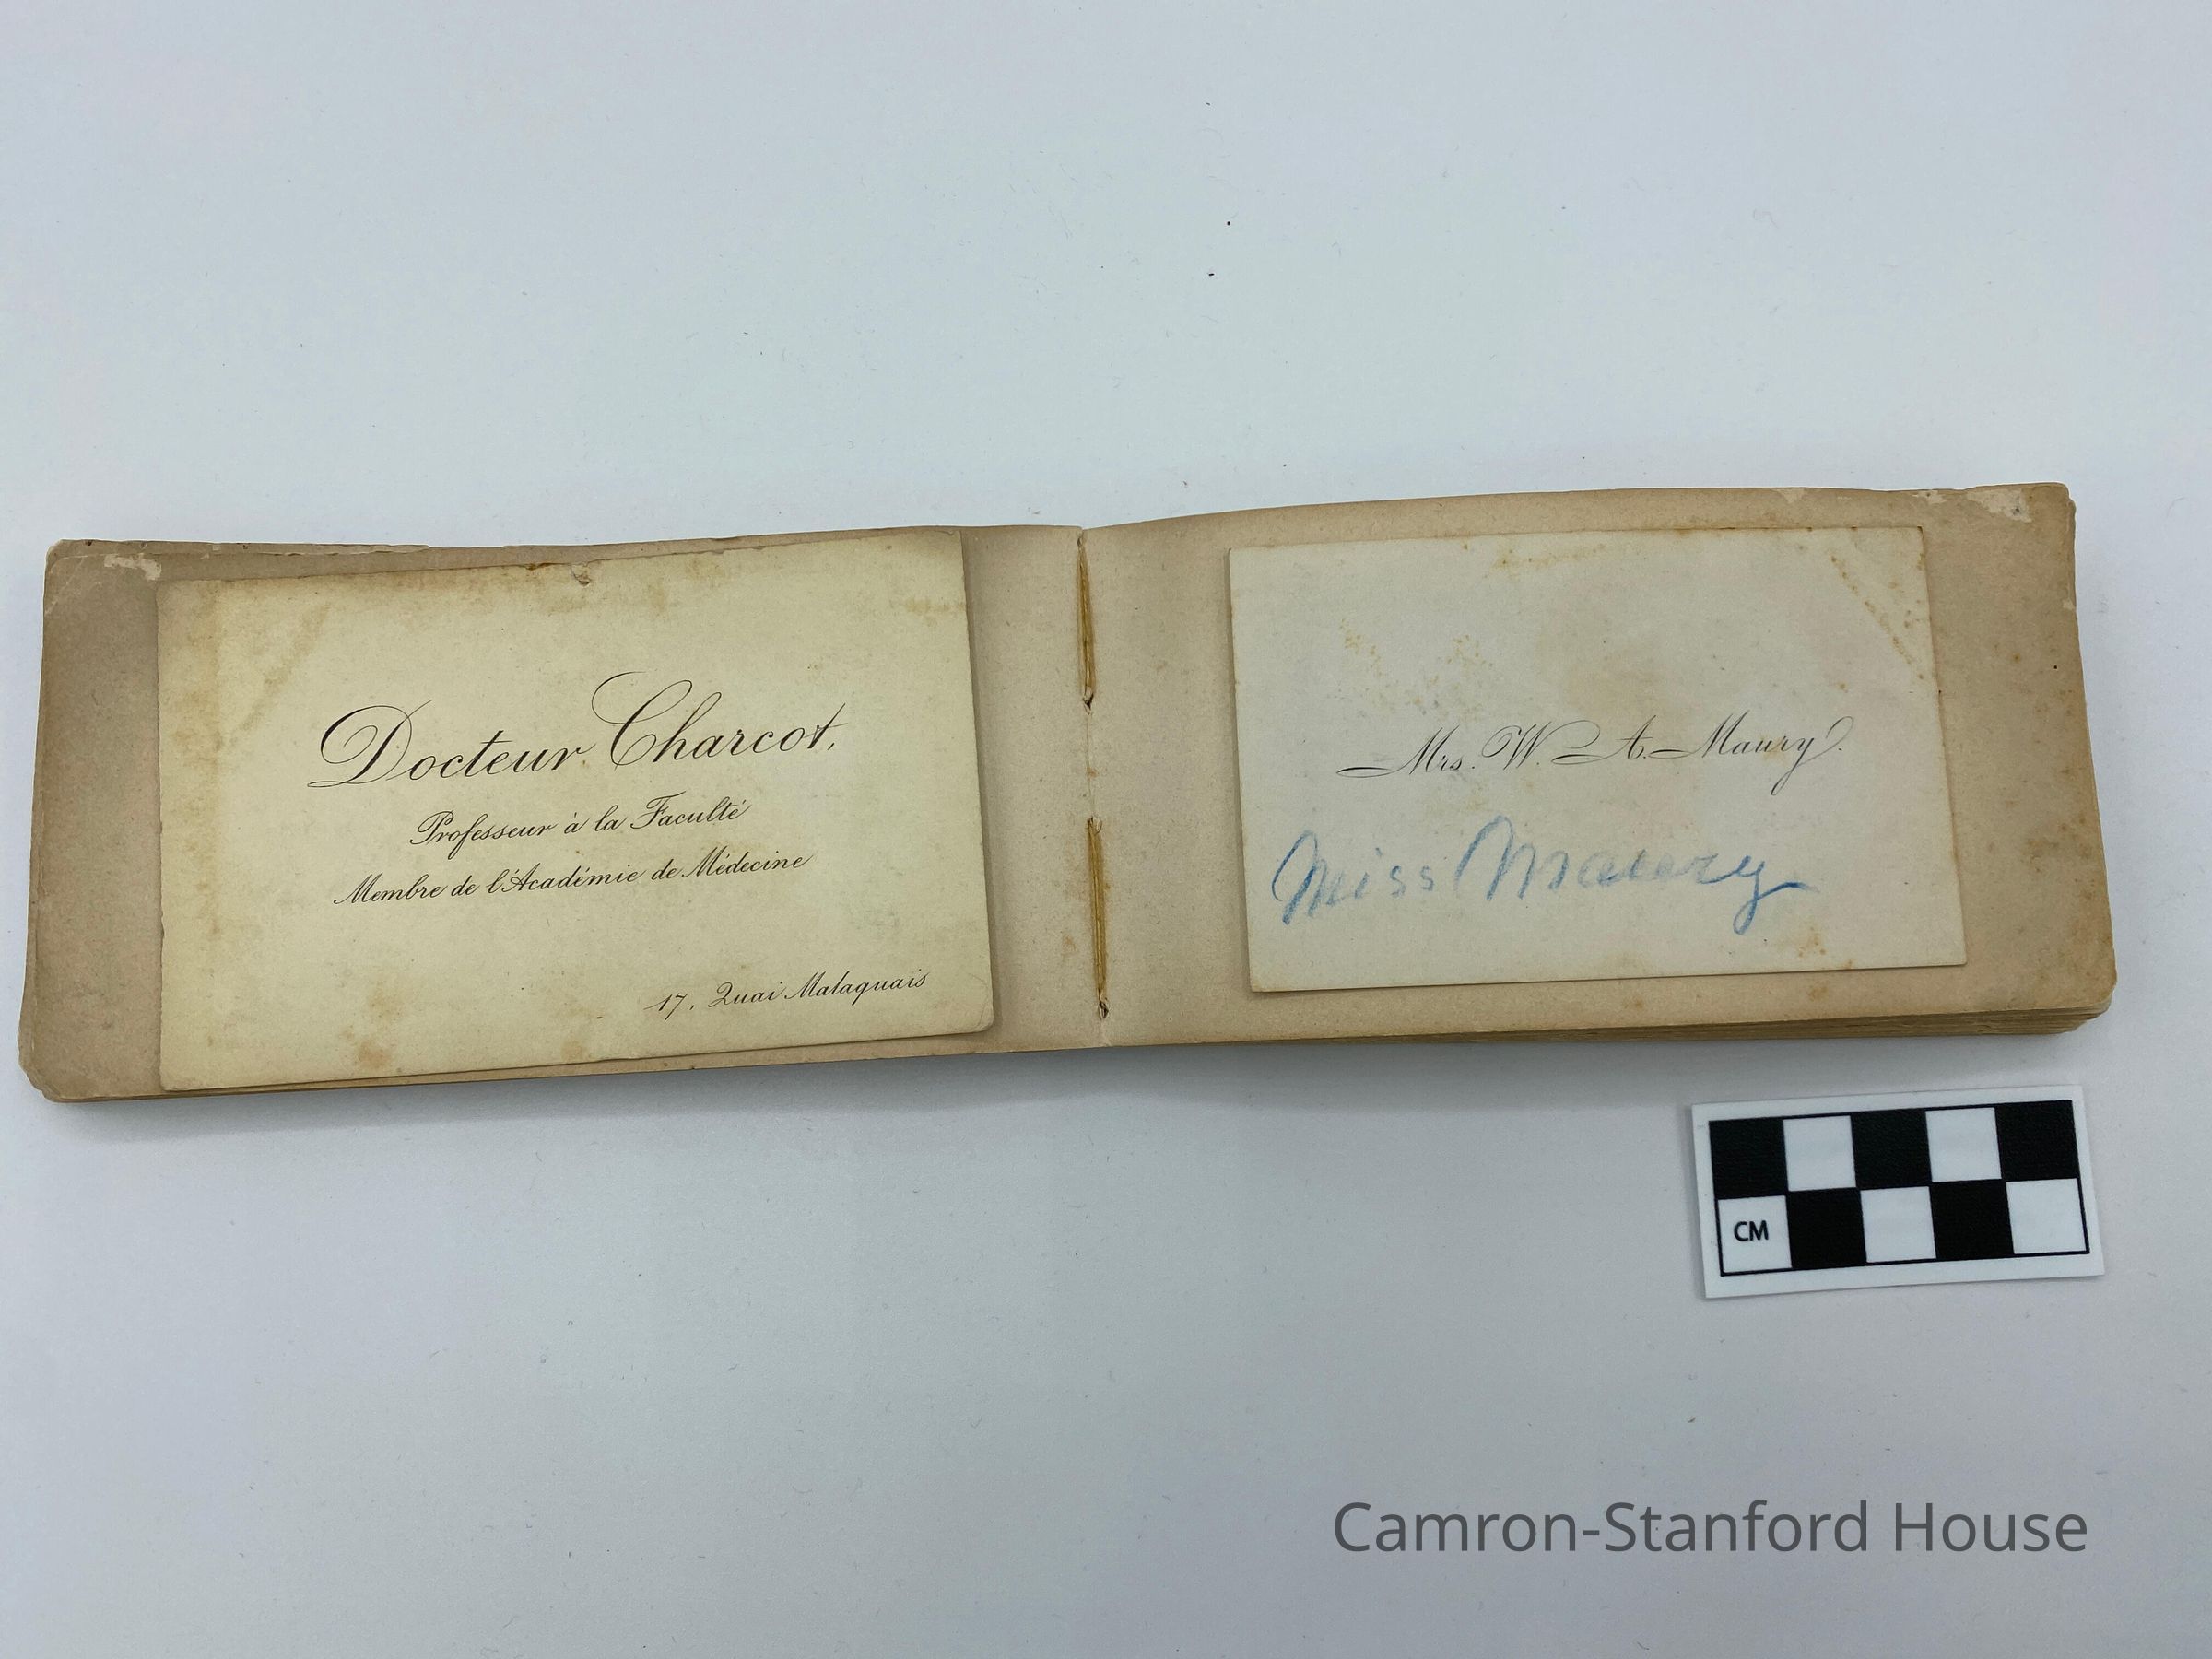 Docteur Charcot,
Professeur à la Faculté
Membre de l'Académie de Médecine
17, Quai Malaquais
Mrs. W. A. Maury.
Miss Maury
CM
Camron-Stanford House